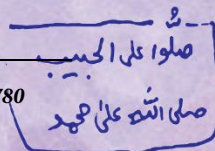 صلُّوا على الحبيب
780
صلى اللّٰه على محمد